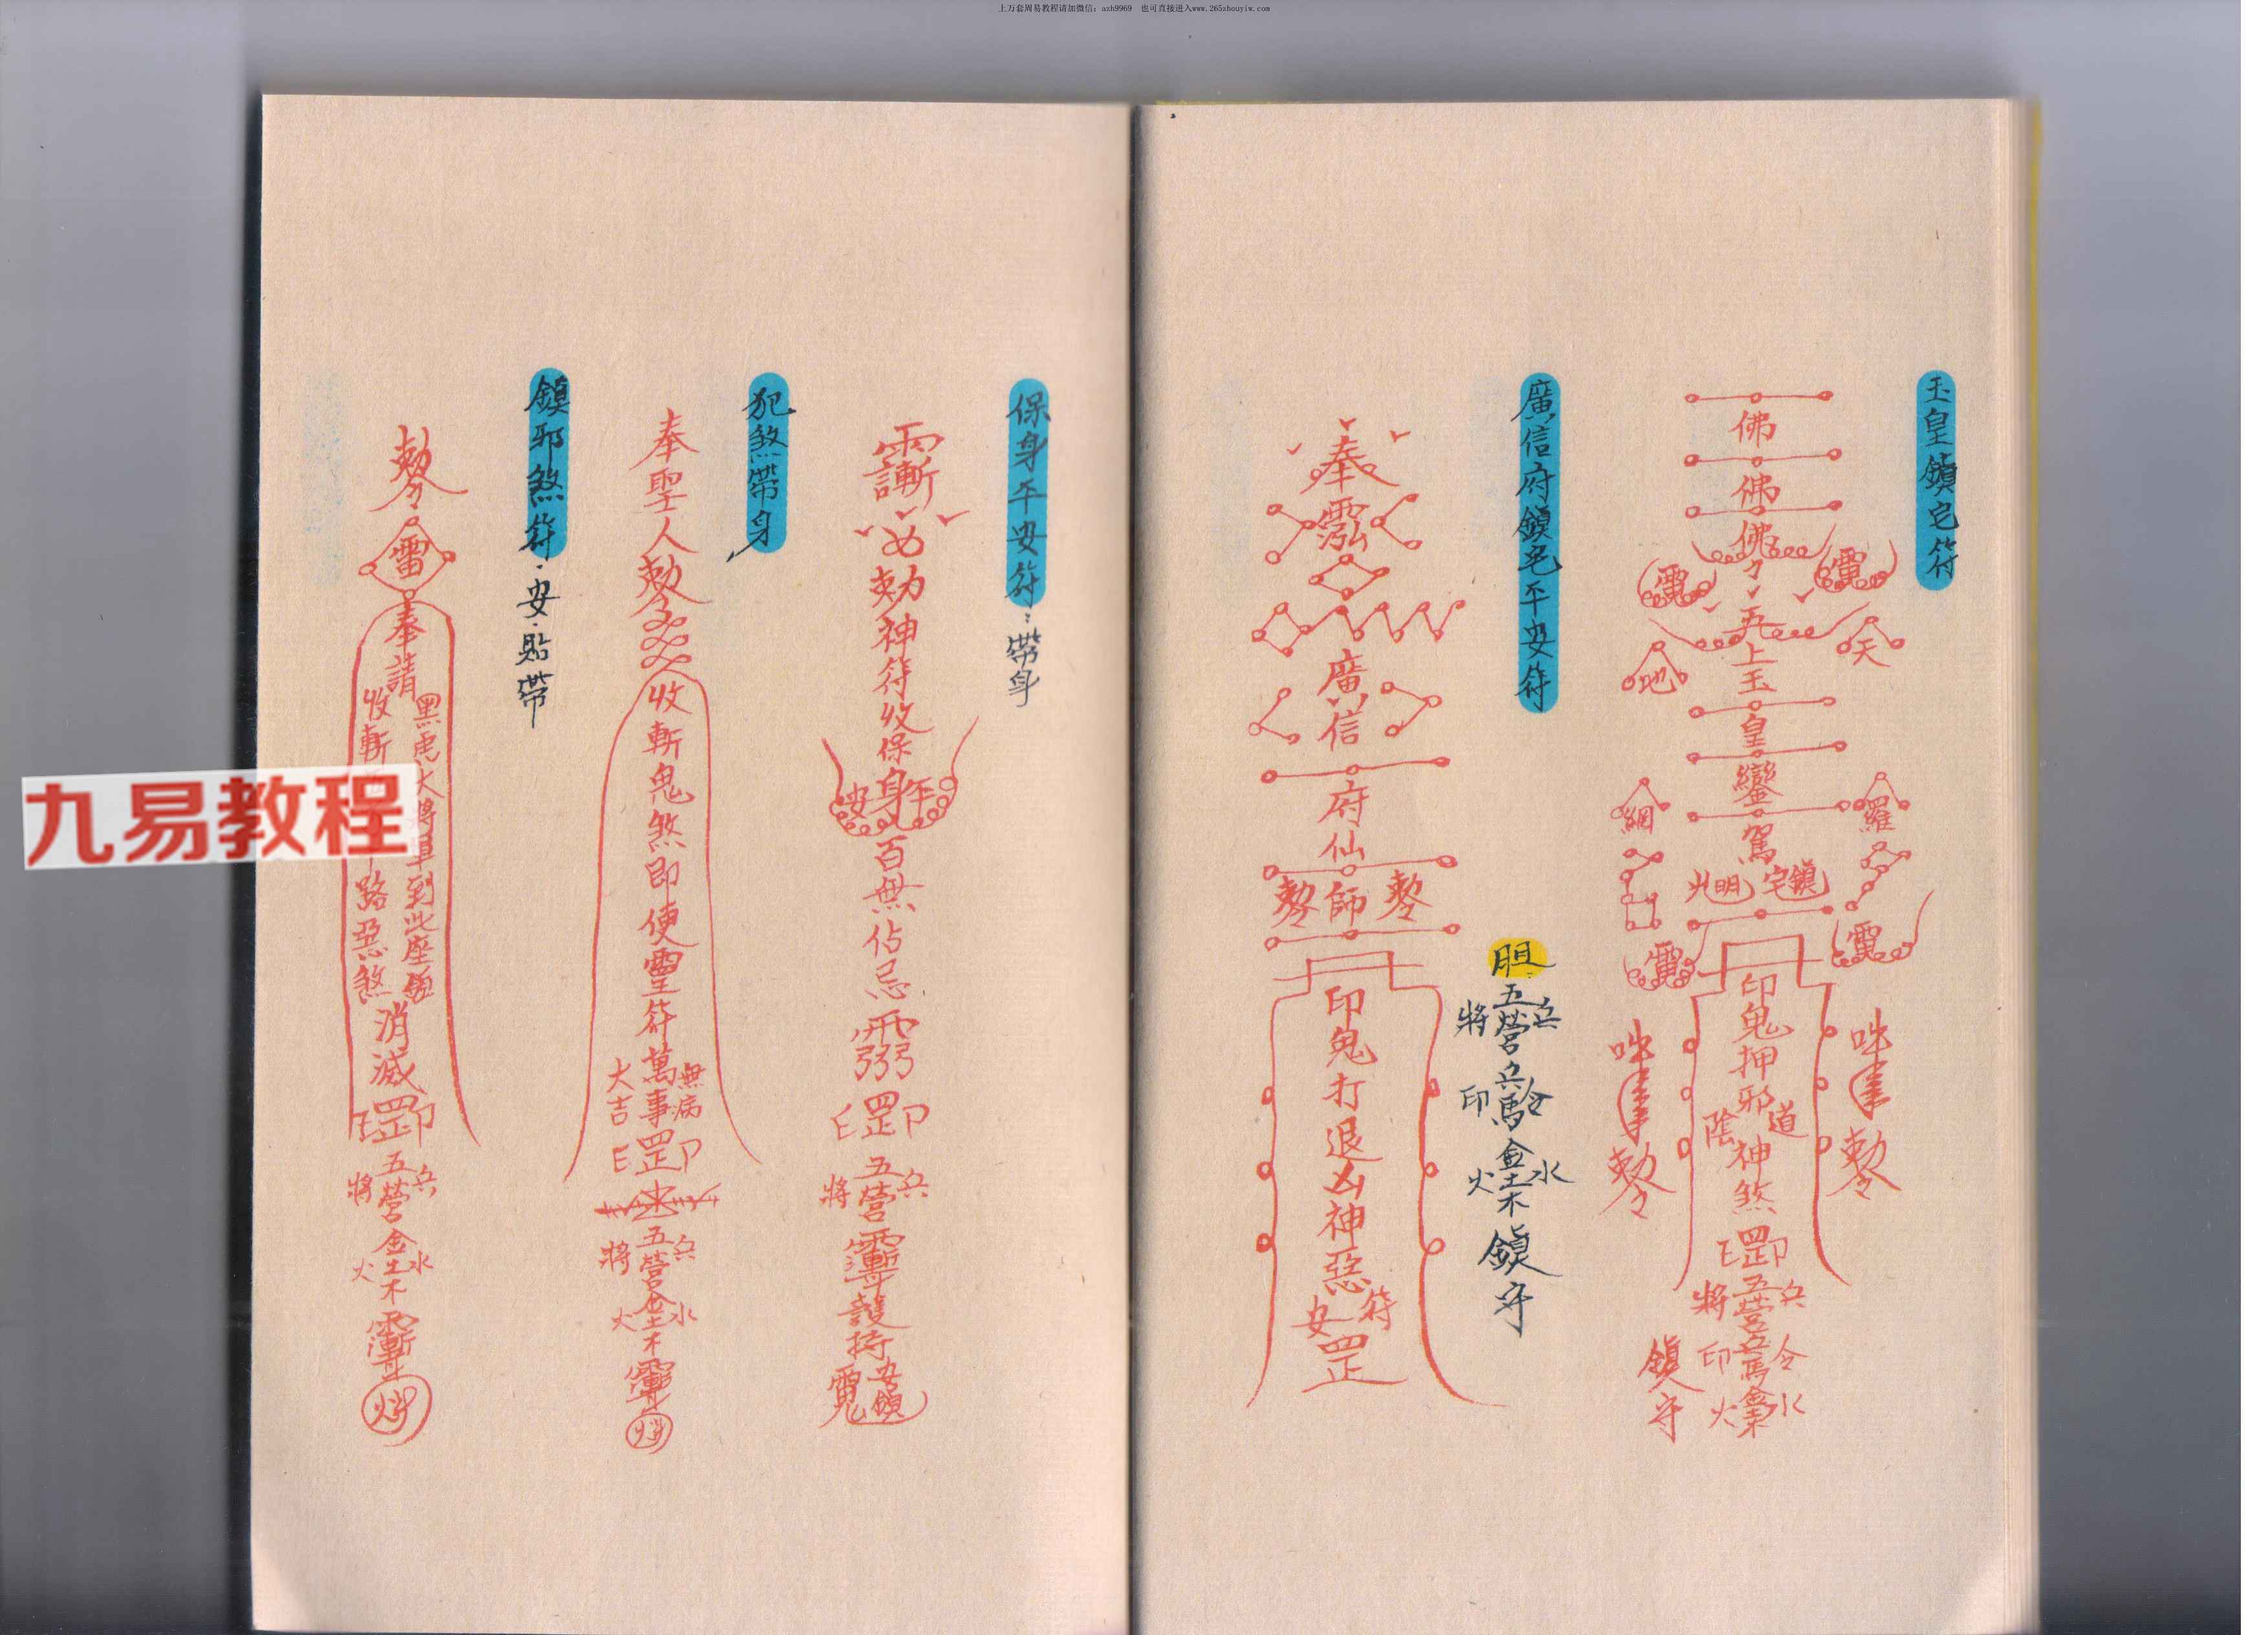 上万套周易教程请加微信：azh9969 也可直接进入www.265zhouyiw.com
玉皇鎮宅符
佛
佛
佛
雷 雷
地 天
玉
皇
鑾
駕
網 羅
鎮宅
光明
雷 雷
印鬼押邪神煞罡
陰 道
五營兵馬
將 兵
印 令
火 水
鎮守
勅令 勅令
廣信府鎮宅平安符
奉
廣信府仙師
勅令 勅令
印鬼打退凶神惡
安 符
罡
胆
五營兵馬金土木鎮守
將 兵
印 令
火 水
保身平安符：帶身
勅神符收保身
安 平
百無佔忌
罡印
五營
將 兵
護持
安鎮
犯煞帶身
奉聖人勅令
收斬鬼煞即便靈符萬事
大吉 無病
罡印
五營金土木
將 兵
火 水
鎮邪煞符：安·貼帶
勅令
雷
奉請
黑虎大將軍到此座鎮
收斬 路惡煞
消滅
罡印
五營金土木
將 兵
火 水
九易教程